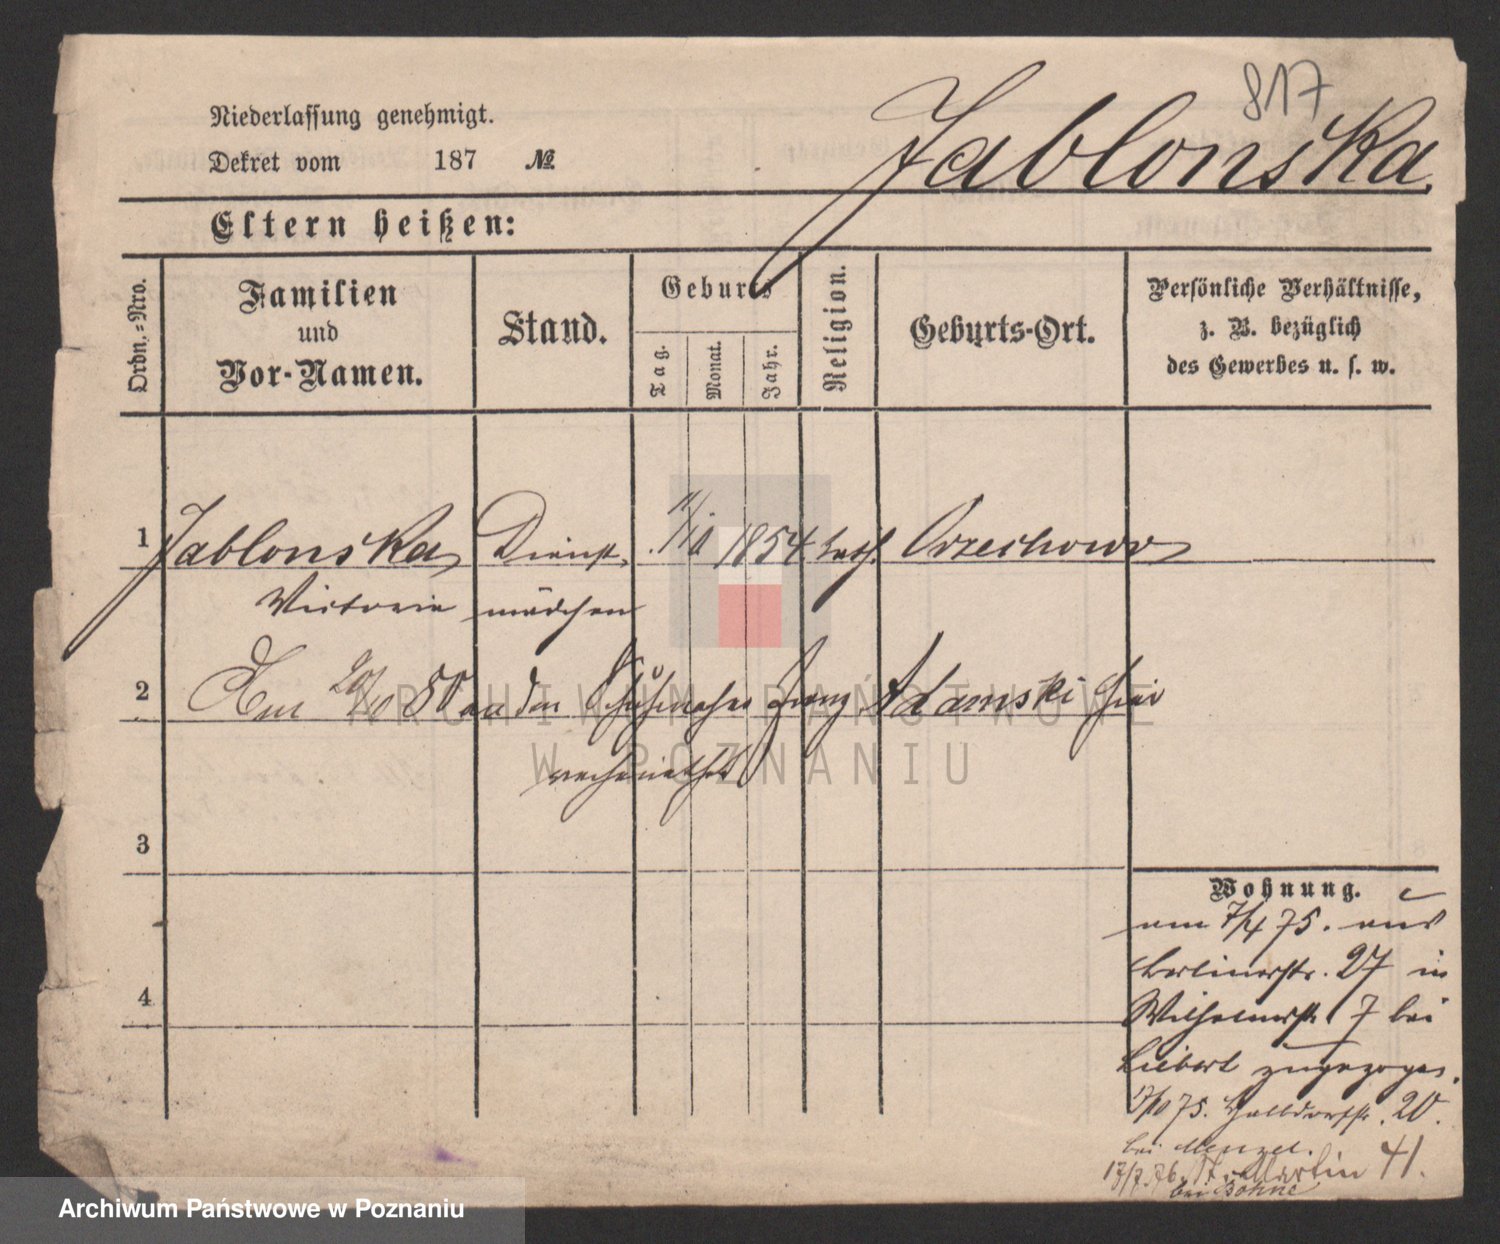 817
Niederlassung genehmigt.
Jablonska.
Dekret vom 187 №
Eltern heißen:
Ordn.=Nro.
Familien und Vor-Namen.
Stand.
Geburts
Tag.
Monat.
Jahr.
Religion.
Geburts-Ort.
Persönliche Verhältnisse,
z. B. bezüglich
des Gewerbes u. s. w.
1 Jablonska Dienst 11/10 1854. kath. Orzechowo
Victoria mädchen
2 Am 20/10 80 an den Schuhmacher Franz Adamski hier
verheirathet
ARCHIWUM PAŃSTWOWE
W POZNANIU
3
4
Wohnung.
am 7/4 75. aus
Berlinerstr. 27 in
Wilhelmstr. 7 bei
Liebert zugezogen.
17/10 75. Halbdorfstr. 20.
bei Menzel.
17/7. 76. St. Martin 41.
bei Böhne
Archiwum Państwowe w Poznaniu